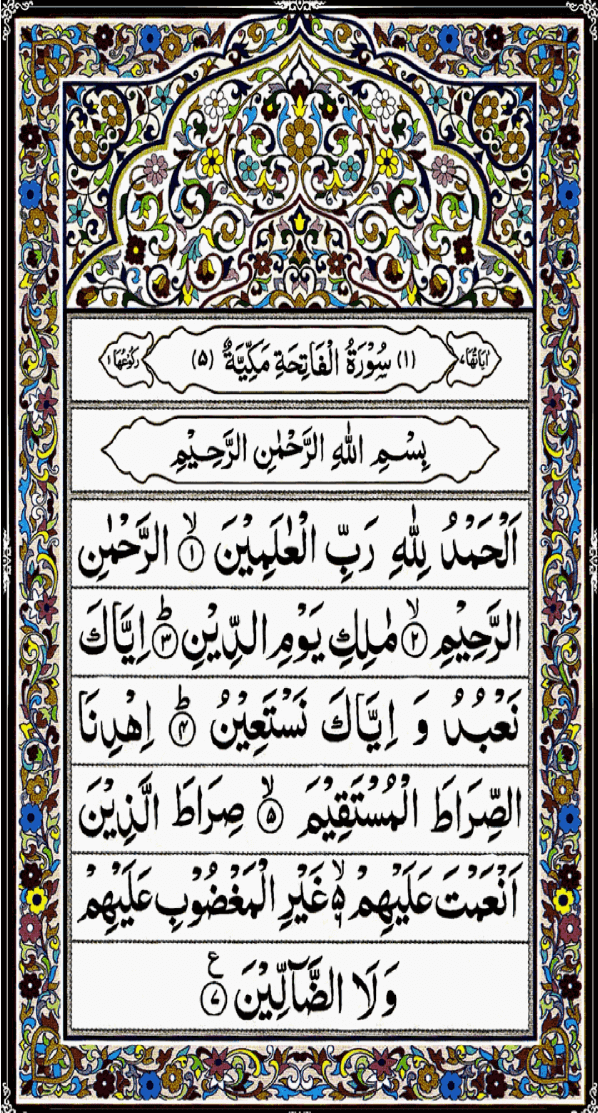 اٰيَاتُهَا ٧ (١) سُوْرَةُ الْفَاتِحَةِ مَكِّيَّةٌ (٥) رُكُوْعُهَا ١
بِسْمِ اللّٰهِ الرَّحْمٰنِ الرَّحِيْمِ
اَلْحَمْدُ لِلّٰهِ رَبِّ الْعٰلَمِيْنَ ۙ ﴿۱﴾ الرَّحْمٰنِ
الرَّحِيْمِ ۙ ﴿۲﴾ مٰلِكِ يَوْمِ الدِّيْنِ ؕ ﴿۳﴾ اِيَّاكَ
نَعْبُدُ وَ اِيَّاكَ نَسْتَعِيْنُ ؕ ﴿۴﴾ اِهْدِنَا
الصِّرَاطَ الْمُسْتَقِيْمَ ۙ ﴿۵﴾ صِرَاطَ الَّذِيْنَ
اَنْعَمْتَ عَلَيْهِمْ ۙ۬ ۶ غَيْرِ الْمَغْضُوْبِ عَلَيْهِمْ
وَلَا الضَّآلِّيْنَ ﴿۷﴾ ع